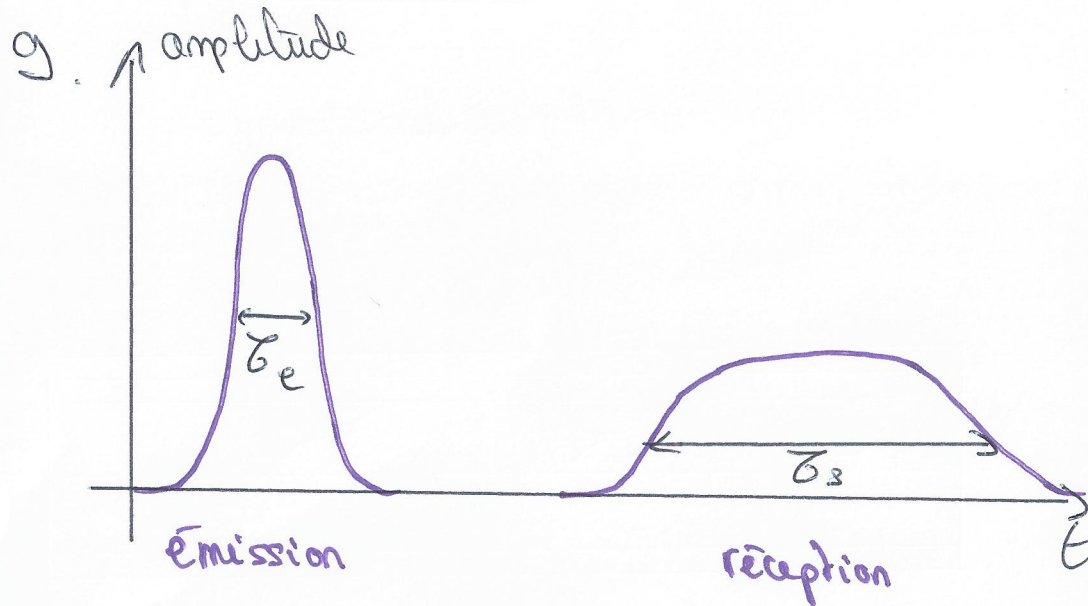 9.
amplitude
τe
τs
t
émission
réception